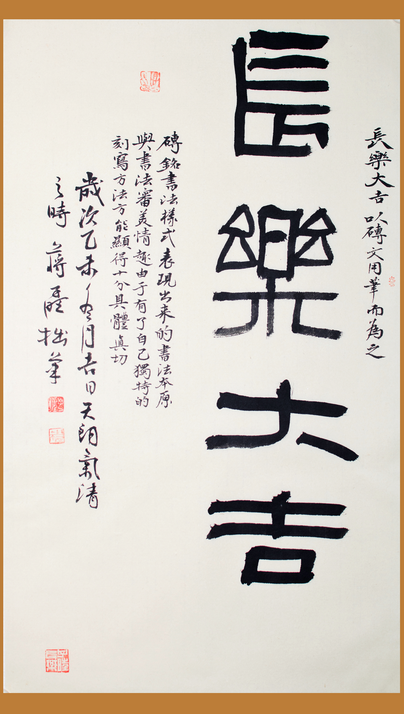 長樂大吉以磚文用筆而為之
長樂大吉
磚銘書法樣式表現出来的書法本原
與書法審美情趣由于有了自己獨特的
刻寫方法方能顯得十分具體真切
歲次乙未冬月吉日天朗氣清
之時蔣
拙筆